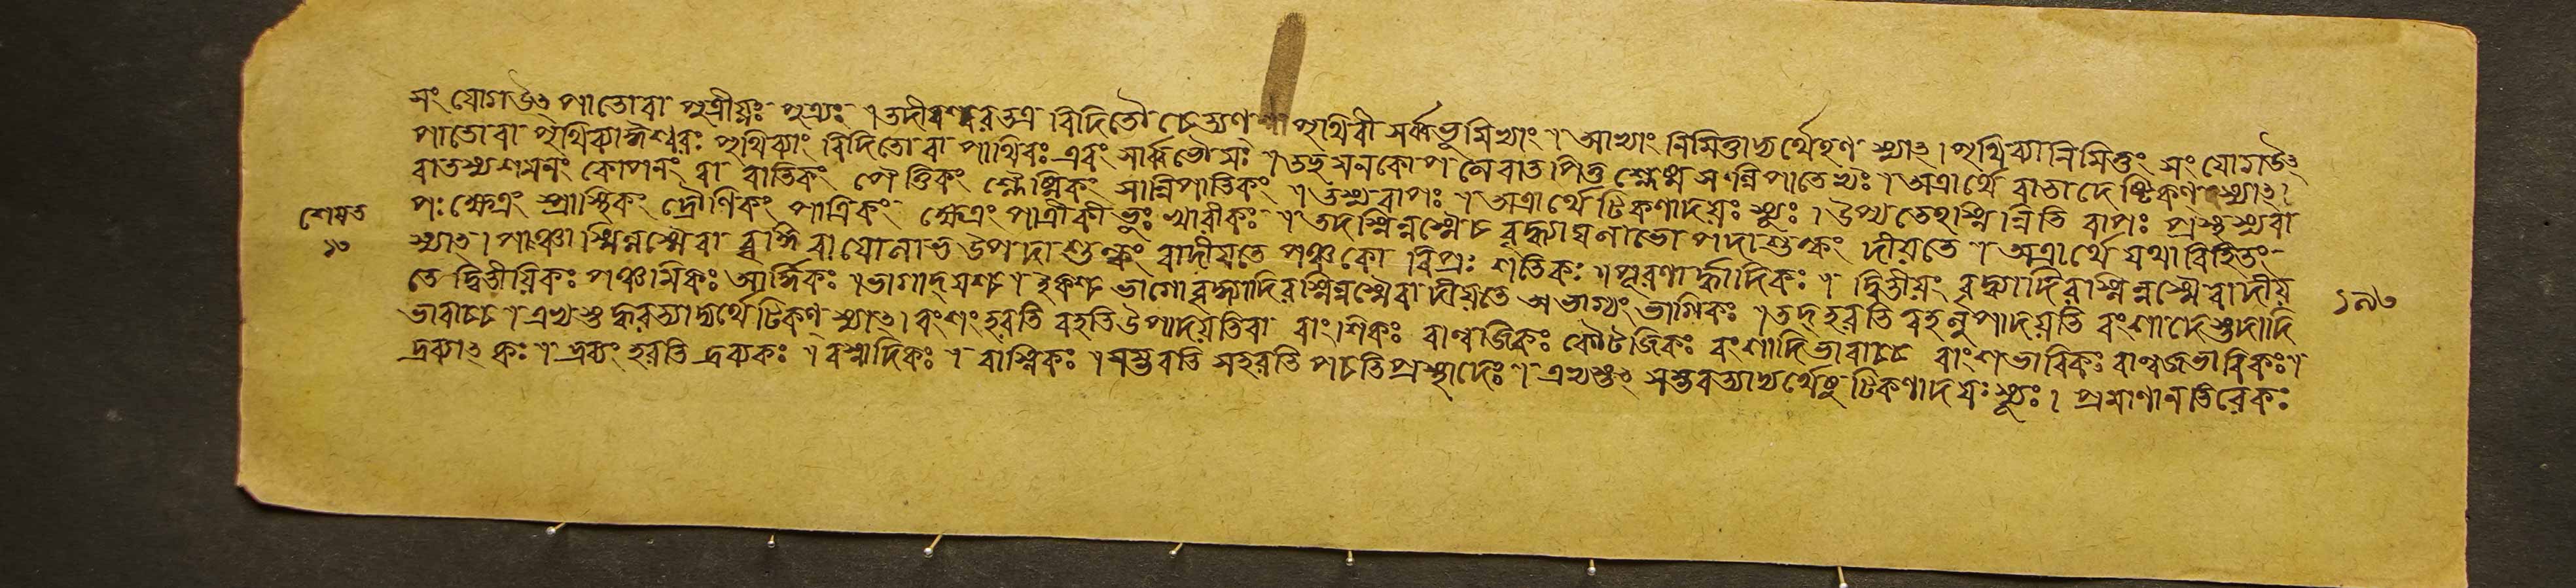 সং যোগউৎ পাতোবা পুত্রীয়ঃ পুত্র্যঃ । তদীশ্বরতত্র বিদিতৌ চেত্যণ পৃথিবী সর্ব্বভুমিখ্যাং । আখ্যাং নিমিত্তাদ্যর্থেহণ স্যাৎ । পৃথিব্যানিমিত্তং সং যোগউৎ
পাতোবা পৃথিব্যাঈশ্বরঃ পৃথিব্যাং বিদিতো বা পার্থিবঃ এবং সার্ব্বভৌমঃ । তচ্ছমনকোপনে বাতপিত্ত শ্লেষ্ম সন্নিপাতেভ্যঃ । অত্রার্থে বাতাদেষ্টিকণ স্যাৎ ।
বাতস্যশমনং কোপনং বা বাতিকং পৈত্তিকং শ্লৈষ্মিকং সান্নিপাতিকং । তস্যবাপঃ । অত্রার্থে টিকণাদয়ঃ স্যুঃ । উপ্যতেহস্মিন্নিতি বাপঃ প্রস্থস্যবা
পঃ ক্ষেত্রং প্রাস্থিকং দ্রৌণিকং পাত্রিকং ক্ষেত্রং পাত্রীকী ভূঃ খারীকঃ । তদস্মিন্নস্মৈচ বৃদ্ধ্যায়লাভো পদাশুল্কং দীয়তে । অত্রার্থে যথাবিহিতং
স্যাৎ । পাঞ্চাস্মিন্নস্মৈবা বৃদ্ধি বাযোলাভ উপদা শুল্কং বাদীয়তে পঞ্চকো বিপ্রঃ শতিকঃ । পূরণার্দ্ধাদিকঃ । দ্বিতীয়ং বৃদ্ধ্যাদিরস্মিন্নস্মৈ বাদীয়
তে দ্বিতীয়িকঃ পঞ্চমিকঃ আর্দ্ধিকঃ । ভাগাদ্যশ্চ । ইকশ্চ ভাগোবৃদ্ধ্যাদিরস্মিন্নস্মৈবা দীয়তে অভাগ্যং ভাগিকঃ । তদ্হরতি বহত্যুপাদয়তি বংশাদেস্তদাদি
ভাবাচ্চ । এভ্যস্তদ্ধরত্যাদ্যর্থেটিকণ স্যাৎ । বংশং হরতি বহতি উপাদয়তিবা বাংশিকঃ বাল্বজিকঃ কৌটজিকঃ বংশাদিভাবাচ্চ বাংশভারিকঃ বাল্বজভারিকঃ ।
দ্রব্যাৎ কঃ । দ্রব্যং হরতি দ্রব্যকঃ । বস্নাদিকঃ । বাস্নিকঃ । সম্ভবতি সহরতি পচতিপ্রস্থাদেঃ । এভ্যস্তৎ সম্ভবত্যাদ্যর্থেষু টিকণাদয়ঃ স্যুঃ । প্রমাণানতিরেকঃ
শেষত
১৩
১৯৩